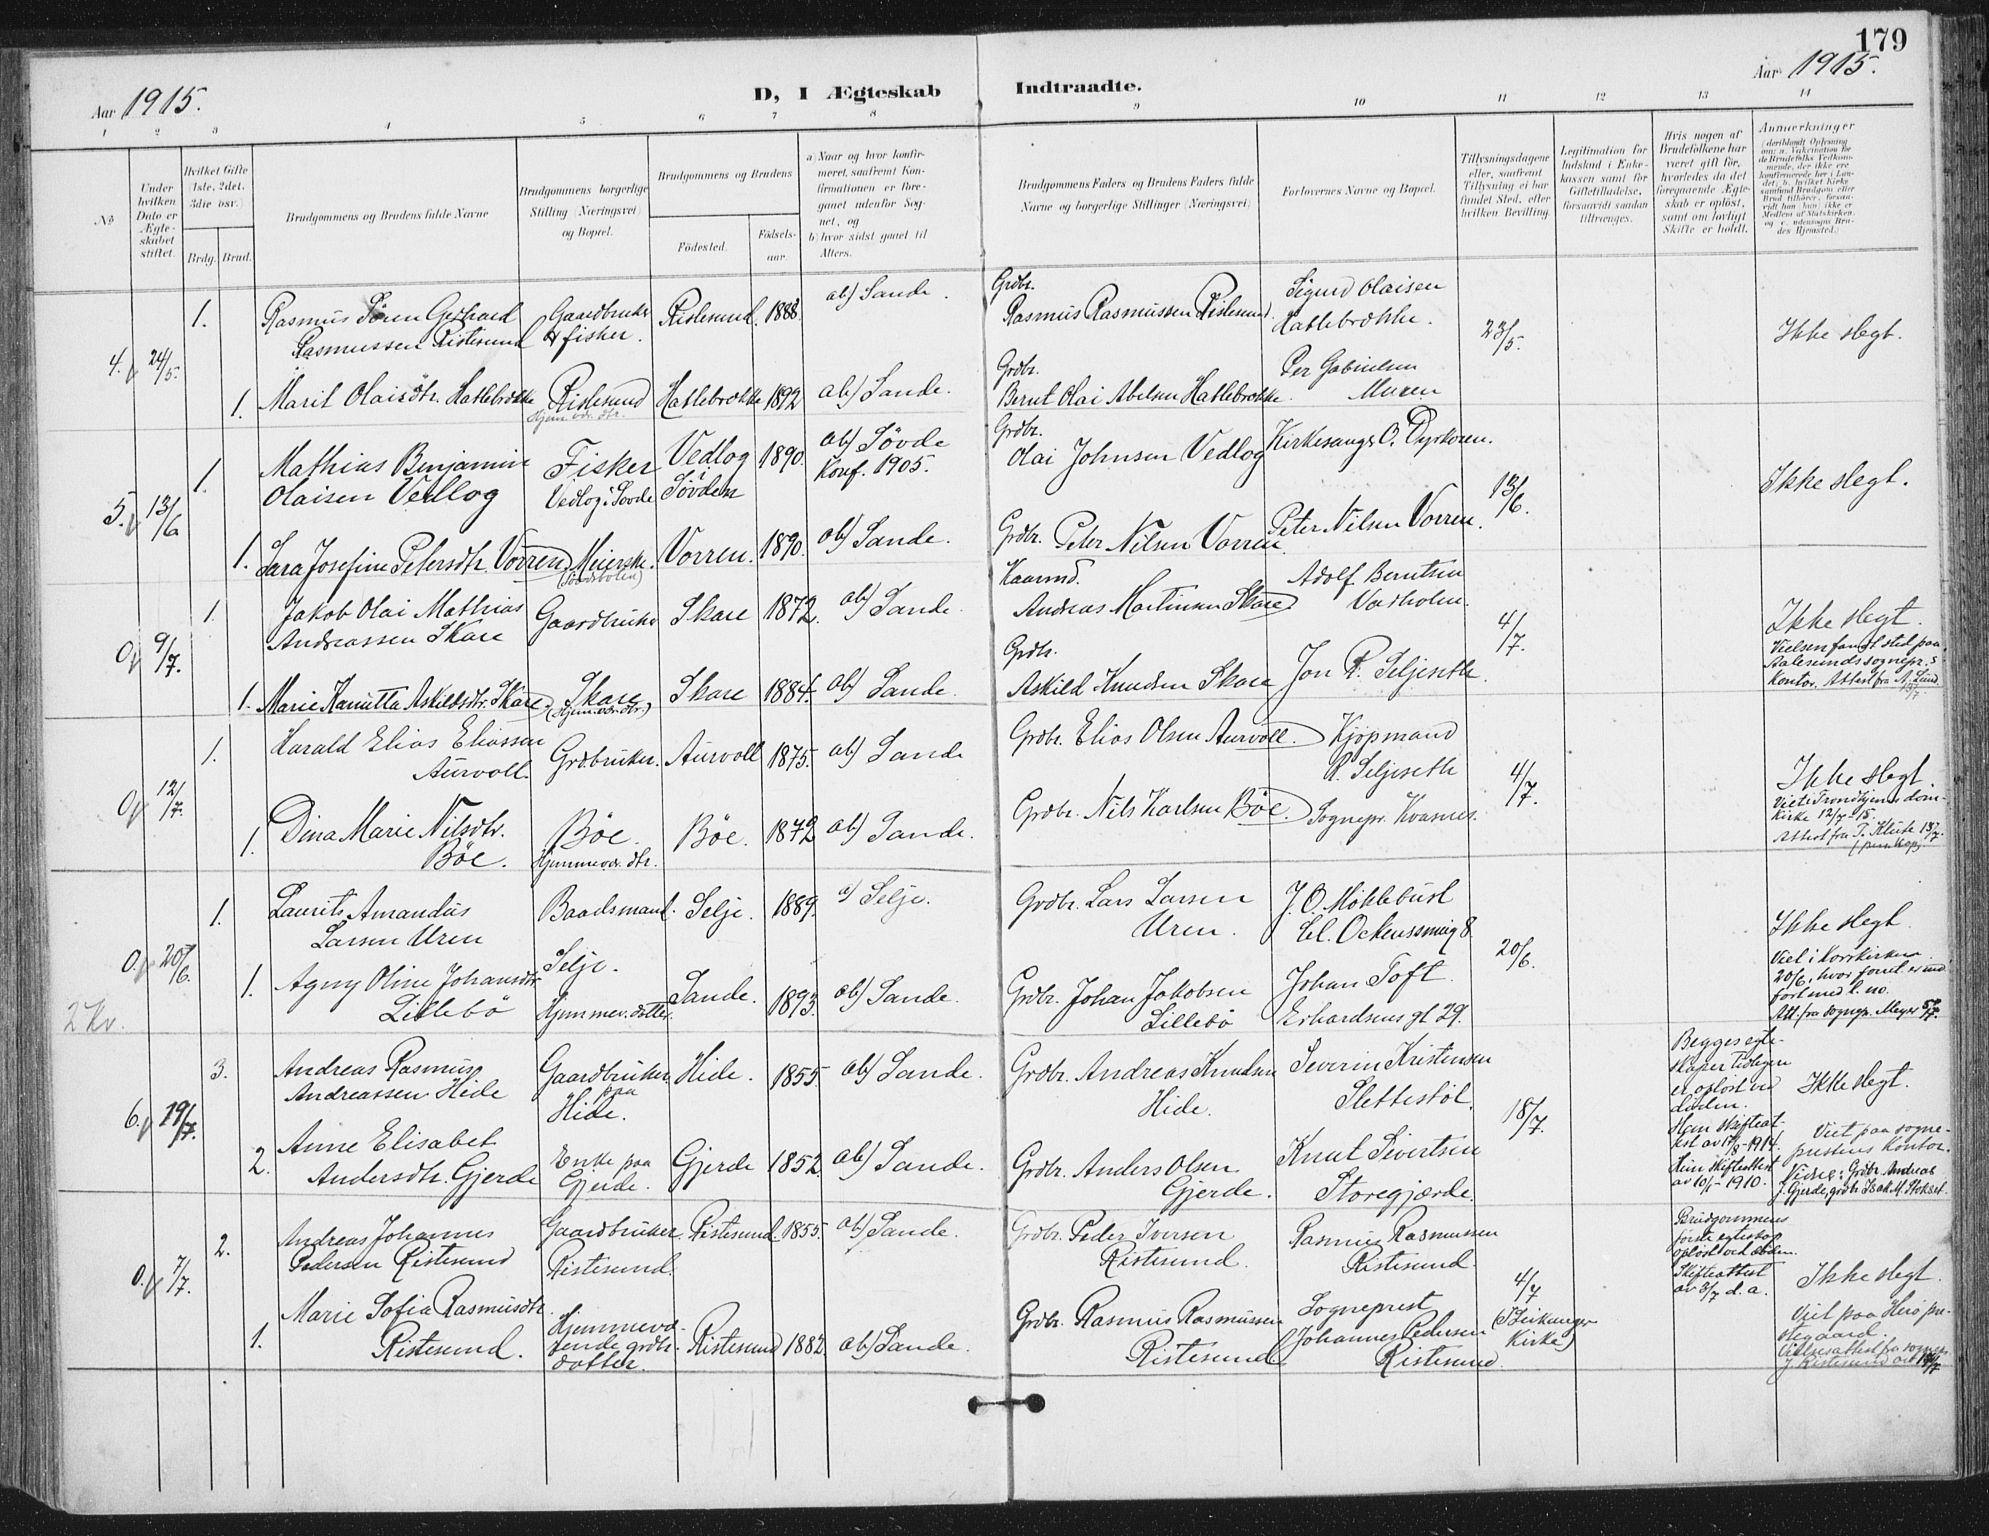 179
Aar 1915.
D, I Ægteskab Indtraadte.
Aar 1915.
1 2 3 4 5 6 7 8 9 10 11 12 13 14
No
Under hvilken Dato er Ægteskabet stiftet.
Hvilket Gifte (1ste, 2det, 3die osv.)
Brdg. Brud.
Brudgommens og Brudens fulde Navne
Brudgommens borgerlige Stilling (Næringsvei) og Bopæl.
Brudgommens og Brudens
Födested.
Födselsaar.
a) Naar og hvor konfirmeret, saafremt Konfirmationen er foregaaet udenfor Sognet, og
b) hvor sidst gaaet til Alters.
Brudgommens Faders og Brudens Faders fulde Navne og borgerlige Stillinger (Næringsvei)
Forlovernes Navne og Bopæl.
Tillysningsdagene eller, saafremt Tillysning ei har fundet Sted, efter hvilken Bevilling.
Legitimation for Indskud i Enkekassen samt for Giftetilladelse, forsaavidt saadan tiltrænges.
Hvis nogen af Brudefolkene har været gift før, hvorledes da det foregaaende Ægteskab er opløst, samt om lovligt Skifte er holdt.
Anmærkninger
(deriblandt Oplysning om: a. Vakcination for de Brudefolks Vedkommende, der ikke ere konfirmerede her i Landet; b. hvilket Kirkesamfund Brudgom eller Brud tilhører, forsaavidt han (hun) ikke er Medlem af Statskirken, og c. udensogns Brudes Hjemsted.)
4. 24/5. 1. Rasmus Sören Gerhard
Rasmussen Ristesund
Gaardbruker
& fisker.
Ristesund. 1888. ab) Sande.
Grdbr.
Rasmus Rasmussen Ristesund.
Sigurd Olaisen
Hatlebrekke.
23/5. Ikke slegt.
1. Marit Olaisdtr. Hatlebrekke
Ristesund
Hjemv. dtr.
Hatlebrekke 1892 ab) Sande.
Grdbr.
Bernt Olai Abelsen Hatlebrekke.
Per Gabrielsen
Muren
5. 13/6 1. Mathias Benjamin
Olaisen Vedlog
Fisker
Vedlog i Søvde
Vedlog
i Søvden
1890. ab) Søvde
Konf. 1905.
Grdbr.
Olai Johnsen Vedlog
Kirkesanger O. Dyrkoren.
13/6. Ikke slegt.
1. Sara Josefine Petersdtr. Vorren
Meierske.
Vorren. 1890. ab) Sande.
Grdbr. Peter Nilsen Vorren
Peter Nilsen Vorren.
0 9/7. 1. Jakob Olai Mathias
Andreassen Skare
Gaardbruker Skare 1872. ab) Sande.
Kaarmd.
Andreas Martinsen Skare
Adolf Berntsen
Vadholm.
4/7. Ikke slegt.
Vielsen fandt sted paa
Aalesunds sognepr.s
kontor. Attest fra A. Lund
1. Marie Kamitta Askildsdtr. Skare.
Skare
(Hjemv. dtr.)
Skare 1884. ab) Sande.
Grdbr.
Askild Knudsen Skare
Jon R. Seljeseth.
0 12/7. 1. Harald Elias Eliassen
Aurvoll.
Grdbruker. Aurvoll 1875. ab) Sande
Grdbr. Elias Olsen Aurvoll.
Kjøpmand
R. Seljeseth
4/7. Ikke slegt.
Viet i Trondhjems domkirke 12/7-15.
1. Dina Marie Nilsdtr.
Böe.
Böe.
Hjemmev. dtr.
Böe. 1872 ab) Sande.
Grdbr. Nils Karlsen Böe.
Sognepr. Kvasnes.
0. 20/6. 1. Laurits Amandus
Larsen Uren
Baadsmand.
Selje.
Selje. 1889. a) Selje.
Grdbr. Lars Larsen
Uren.
J. O. Möklebust
20/6. Ikke slegt.
Viet i Korskirken
20/6, hvor forret. er indført med l. no.
Att. fra sognepr. Meyer 5/7.
2 kv.
1. Agny Oline Johansdtr.
Lillebö
Hjemmev. datter.
Sande. 1893. ab) Sande.
Grdbr. Johan Jakobsen
Lillebö
Johan Toft
29.
6. 19/7. 3. Andreas Rasmus
Andreassen Hide
Gaardbruker
paa
Hide.
Hide. 1855. ab) Sande.
Grdbr. Andreas Knudsen
Hide.
Severin Kristensen
Slettestöl.
18/7.
Begges egteskaper tidligere
er opløst ved
døden.
Hans skifteattest av 17/8-1914.
Hun skifteattest
av 10/1-1910.
Ikke slegt.
Viet paa sogneprestens kontor.
Vidne: Grdbr. Andreas
J. Gjerde, grdbr. Isak M. Stokset.
2. Anne Elisabet
Andersdtr. Gjerde
Enke paa
Gjerde.
Gjerde 1852. ab) Sande.
Grdbr. Anders Olsen
Gjerde.
Knut Sivertsen
Storegjærde.
0. 7/7. 2. Andreas Johannes
Pedersen Ristesund
Gaardbruker.
Ristesund.
Ristesund. 1855. ab) Sande.
Grdbr. Peder Iversen
Ristesund.
Rasmus Rasmussen
Ristesund.
4/7
(Leikanger
Kirke)
Brudgommens
første egteskap
opløst ved døden.
Skifteattest
av 3/7 d. a.
Ikke slegt.
Viet paa Herö prestegaard.
Vielsesattest fra sognepr.
J. Ristesund
1. Marie Sofia Rasmusdtr.
Ristesund.
Hjemmeværende grdbr.
datter.
Ristesund 1882 ab) Sande.
Grdbr. Rasmus Rasmussen
Ristesund.
Sogneprest
Johannes Pedersen
Ristesund.